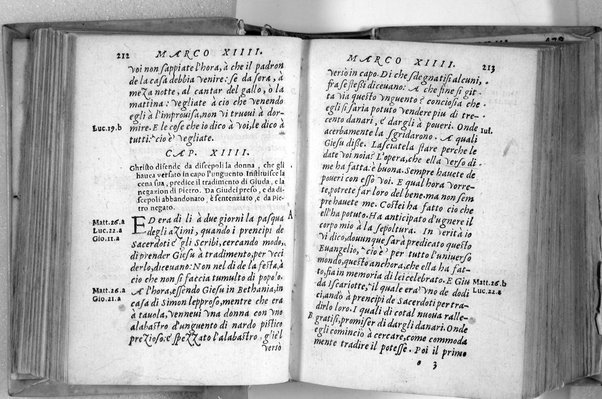 212 MARCO XIIII.
voi non sappiate l'hora, à che il padron
de la casa debbia venire: se da sera, ò à
meza notte, al cantar del gallo, ò la
mattina: vegliate à ciò che venendo
egli à l'improuisa, non vi truoui à dor-
Luc.19.b
mire. E le cose che io dico à voi, le dico à
tutti: ciò è vegliate.
CAP. XIIII.
Christo difende da discepoli la donna, che gli
haueua versato in capo l'unguento. Instituisce la
cena sua, predice il tradimento di Giuda, e la
negation di Pietro. Da Giudei preso, e da di-
scepoli abbandonato, è sentenziato, e da Pie
tro negato.
Matt.26.a
Luc.22.a
Gio.11.a
A
ED era di lì à due giorni la pasqua
degli azimi, quando i prencipi de
Sacerdoti e gli Scribi, cercando modo,
di prender Giesu à tradimento, per vcci
derlo, diceuano: Non nel dì de la festa, à
ciò che non si faccia tumulto di popolo.
Matt.26.a
Gio.21.a
A l'hora, essendo Giesu in Bethania, in
casa di Simon lepproso, mentre che era
à tauola, venneui vna donna con vno
alabastro d'unguento di nardo pistico
prezioso: e spezzato l'alabastro, glie'l
verio
MARCO XIIII. 213
verio in capo. Di che sdegnatisi alcuni,
fra se stessi diceuano: A che fine si git-
ta via questo vnguento? conciosia che
egli si saria potuto vendere piu di tre-
cento danari, e dargli à poueri. Onde
Iui.
acerbamente la sgridarono. A quali
Giesu disse. Lasciatela stare perche le
date voi noia? L'opera, che ella verso di
me ha fatta: è buona. Sempre hauete de
poueri con esso voi. E qual hora vorre-
te, potrete far loro del bene. ma non sem
pre hauete me. Costei ha fatto ciò che
ell'ha potuto. Ha anticipato d'ugnere il
corpo mio à la sepoltura. In verità io
vi dico, douunque sarà predicato questo
Euangelio, ciò è per tutto l'uniuerso
mondo, questo anchora, che ella ha fat-
to, sia in memoria di lei celebrato. E Giu
Matt.26.b
Luc.22.a
da Iscariotte, il quale era vno de dodi
ci, andò à prencipi de Sacerdoti per tra-
dirlo loro. I quali di cotal nuoua ralle-
B
gratisi, promiser di dargli danari. Onde
egli cominciò à cercare, come commoda
mente tradire il potesse. Poi il primo
o 3